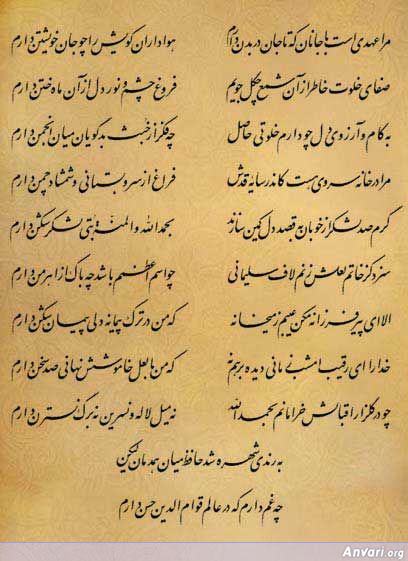 مرا عهدی است با جانان که تا جان در بدن دارم هواداران کویش را چو جان خویشتن دارم
صفای خلوت خاطر از آن شمع چگل جویم فروغ چشم و نور دل از آن ماه ختن دارم
به کام و آرزوی دل چو دارم خلوتی حاصل چه فکر از خبث بدگویان میان انجمن دارم
مرا در خانه سروی هست کاندر سایه قدش فراغ از سرو بستانی و شمشاد چمن دارم
گرم صد لشکر از خوبان به قصد دل کمین سازند بحمد الله و المنة بتی لشکر شکن دارم
سزد کز خاتم لعلش زنم لاف سلیمانی چو اسم اعظمم باشد چه باک از اهرمن دارم
الا ای پیر فرزانه مکن عیبم ز میخانه که من در ترک پیمانه دلی پیمان شکن دارم
خدا را ای رقیب امشب زمانی دیده بر هم نه که من با لعل خاموشش نهانی صد سخن دارم
چو در گلزار اقبالش خرامانم بحمد الله نه میل لاله و نسرین نه برگ نسترن دارم
به رندی شهره شد حافظ میان همدمان لیکن
چه غم دارم که در عالم قوام الدین حسن دارم
Anvari.org